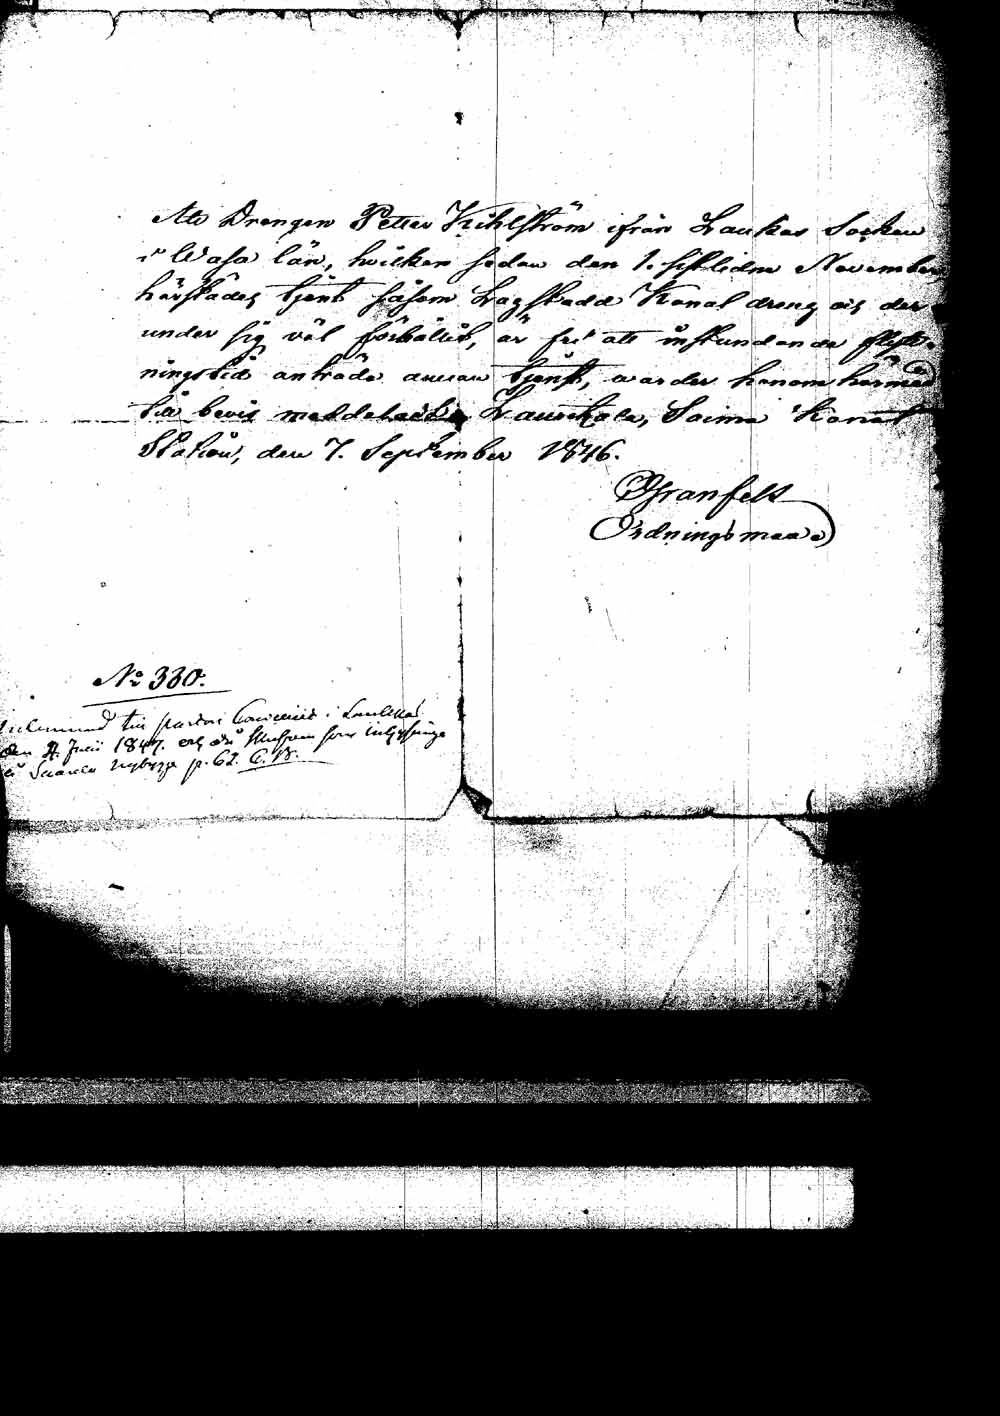 Att Drengen Petter Kihlström ifrån Laukas Socken
i Wasa län, hvilken sedan den 1. sistlidne November
härstädes tjent såsom Lagstadd Kanal dreng och der
under sig väl förhållit, är fri att instundande flytt-
ningstid anträda annan tjenst, warder honom härmed
till bevis meddeladt. Lauritsala, Saima Kanal
Station, den 7. September 1846.
Granfelt
Ordningsman
No 330.
till pastors i Laukas
den 4. Juni 1847. och
p. 62.